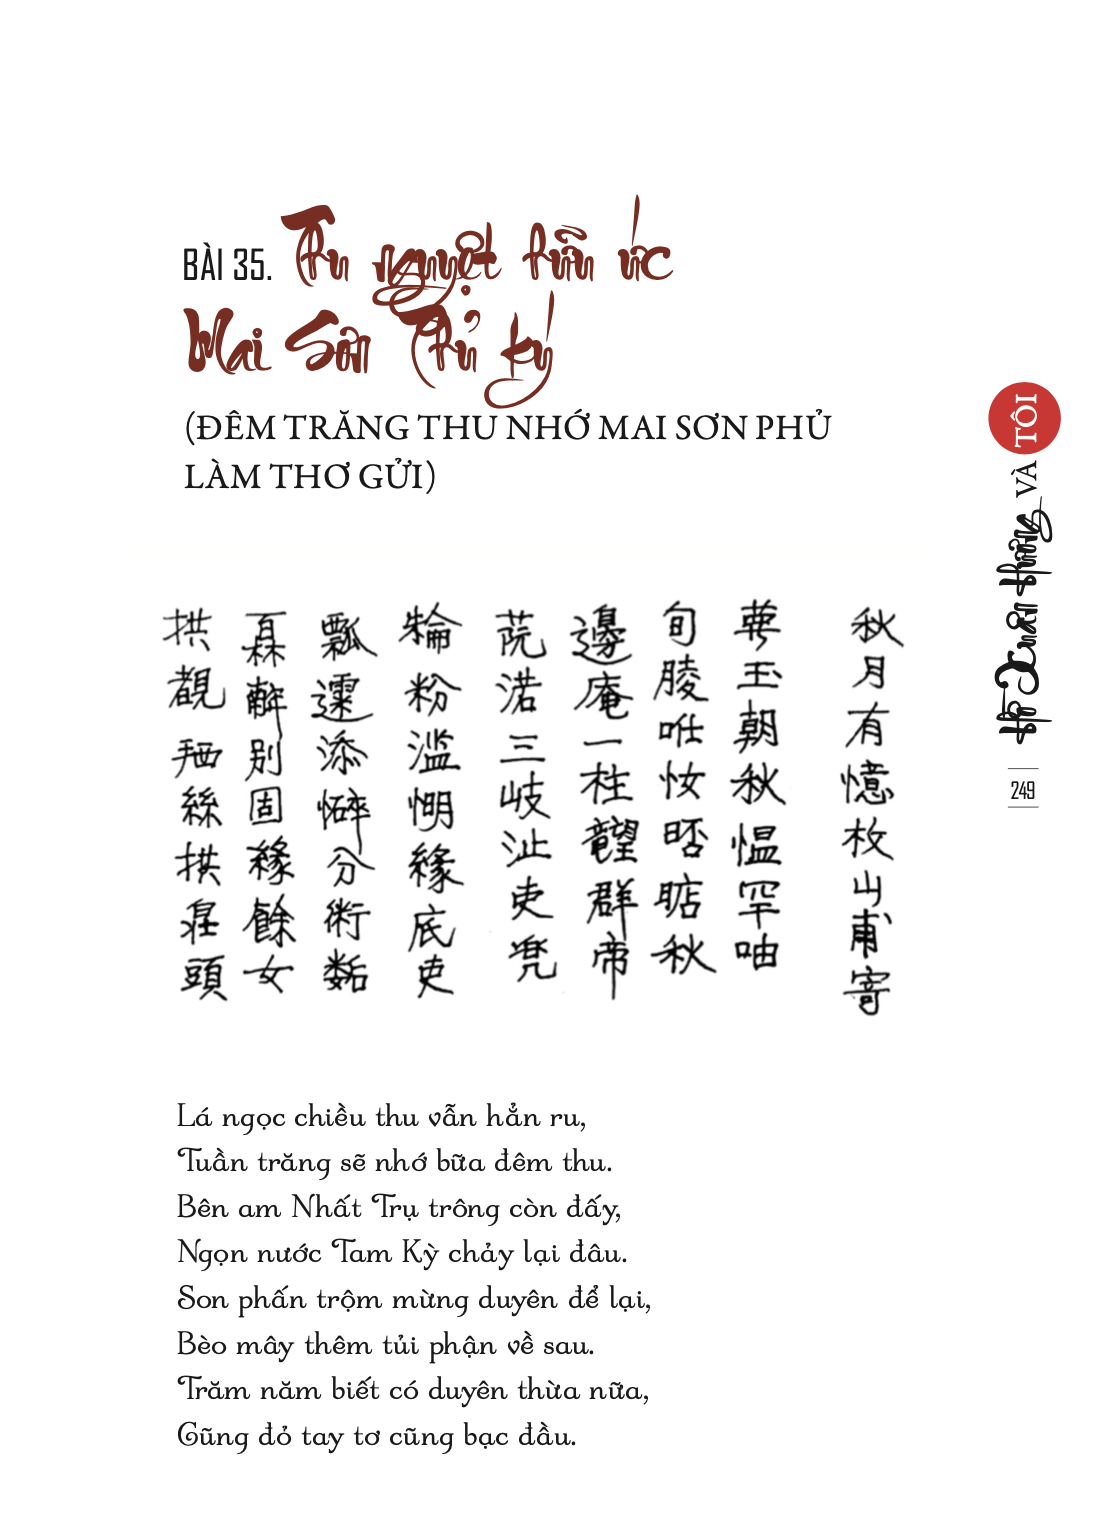 BÀI 35. Thu nguyệt hữu ức
Mai Sơn Phủ ký
(ĐÊM TRĂNG THU NHỚ MAI SƠN PHỦ
LÀM THƠ GỬI)
秋月有憶枚山甫寄
玉朝秋愠罕
旬 秋
邊庵一柱 群帝
渃三岐沚吏
粉滥 緣底吏
瓢 添 分術
別固緣餘女
拱 絲拱 頭
Lá ngọc chiều thu vẫn hẳn ru,
Tuần trăng sẽ nhớ bữa đêm thu.
Bên am Nhất Trụ trông còn đấy,
Ngọn nước Tam Kỳ chảy lại đâu.
Son phấn trộm mừng duyên để lại,
Bèo mây thêm tủi phận về sau.
Trăm năm biết có duyên thừa nữa,
Cũng đỏ tay tơ cũng bạc đầu.
Hồ Xuân Hương VÀ TÔI
249